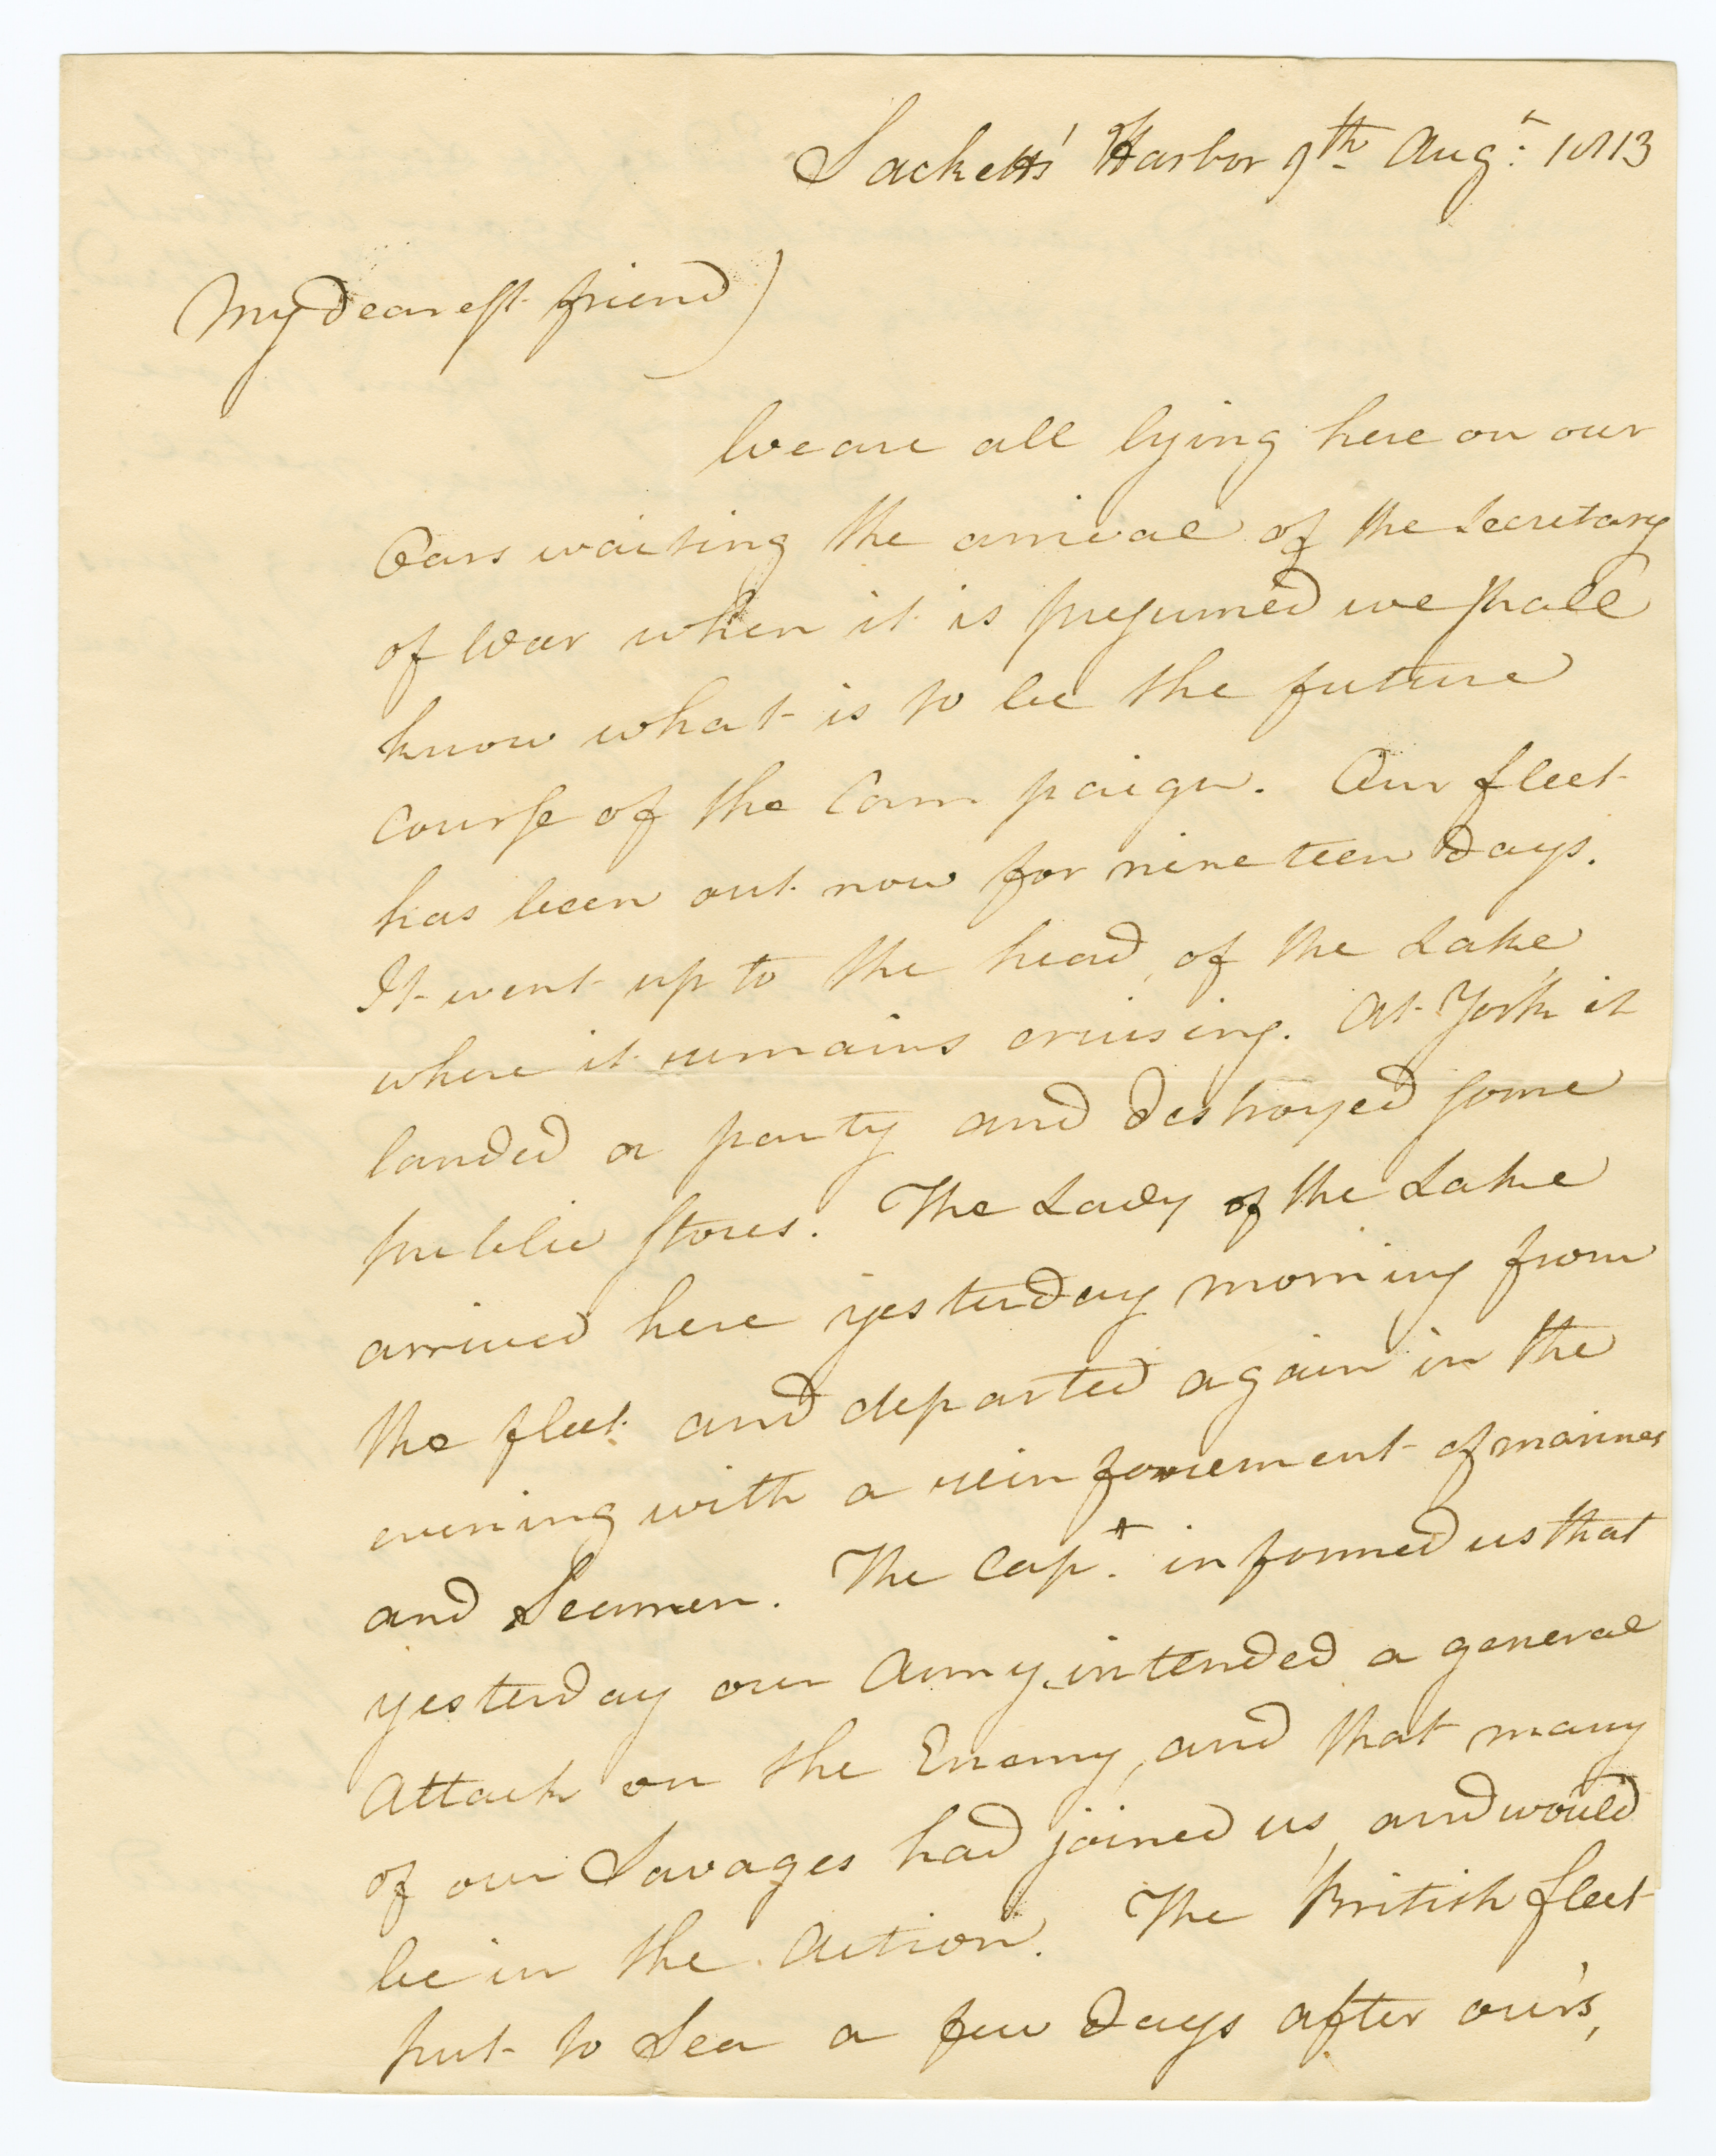 Sacketts' Harbor 9th Augt. 1813
My dearest friend)
We are all lying here on our
Oars waiting the arrival of the Secretary
of War when it is presumed we shall
know what is to be the future
course of the Campaign. Our fleet
has been out now for nineteen days.
It went up to the head, of the Lake
where it remains cruising. At York it
landed a party and destroyed some
public stores. The Lady of the Lake
arrived here yesterday morning from
the fleet and departed again in the
evening with a reinforcement of marines
and Seamen. The Capt. informed us that
yesterday our Army intended a general
Attack on the Enemy, and that many
of our Savages had joined us, and would
be in the Action. The British fleet
put to Sea a few days after our's,